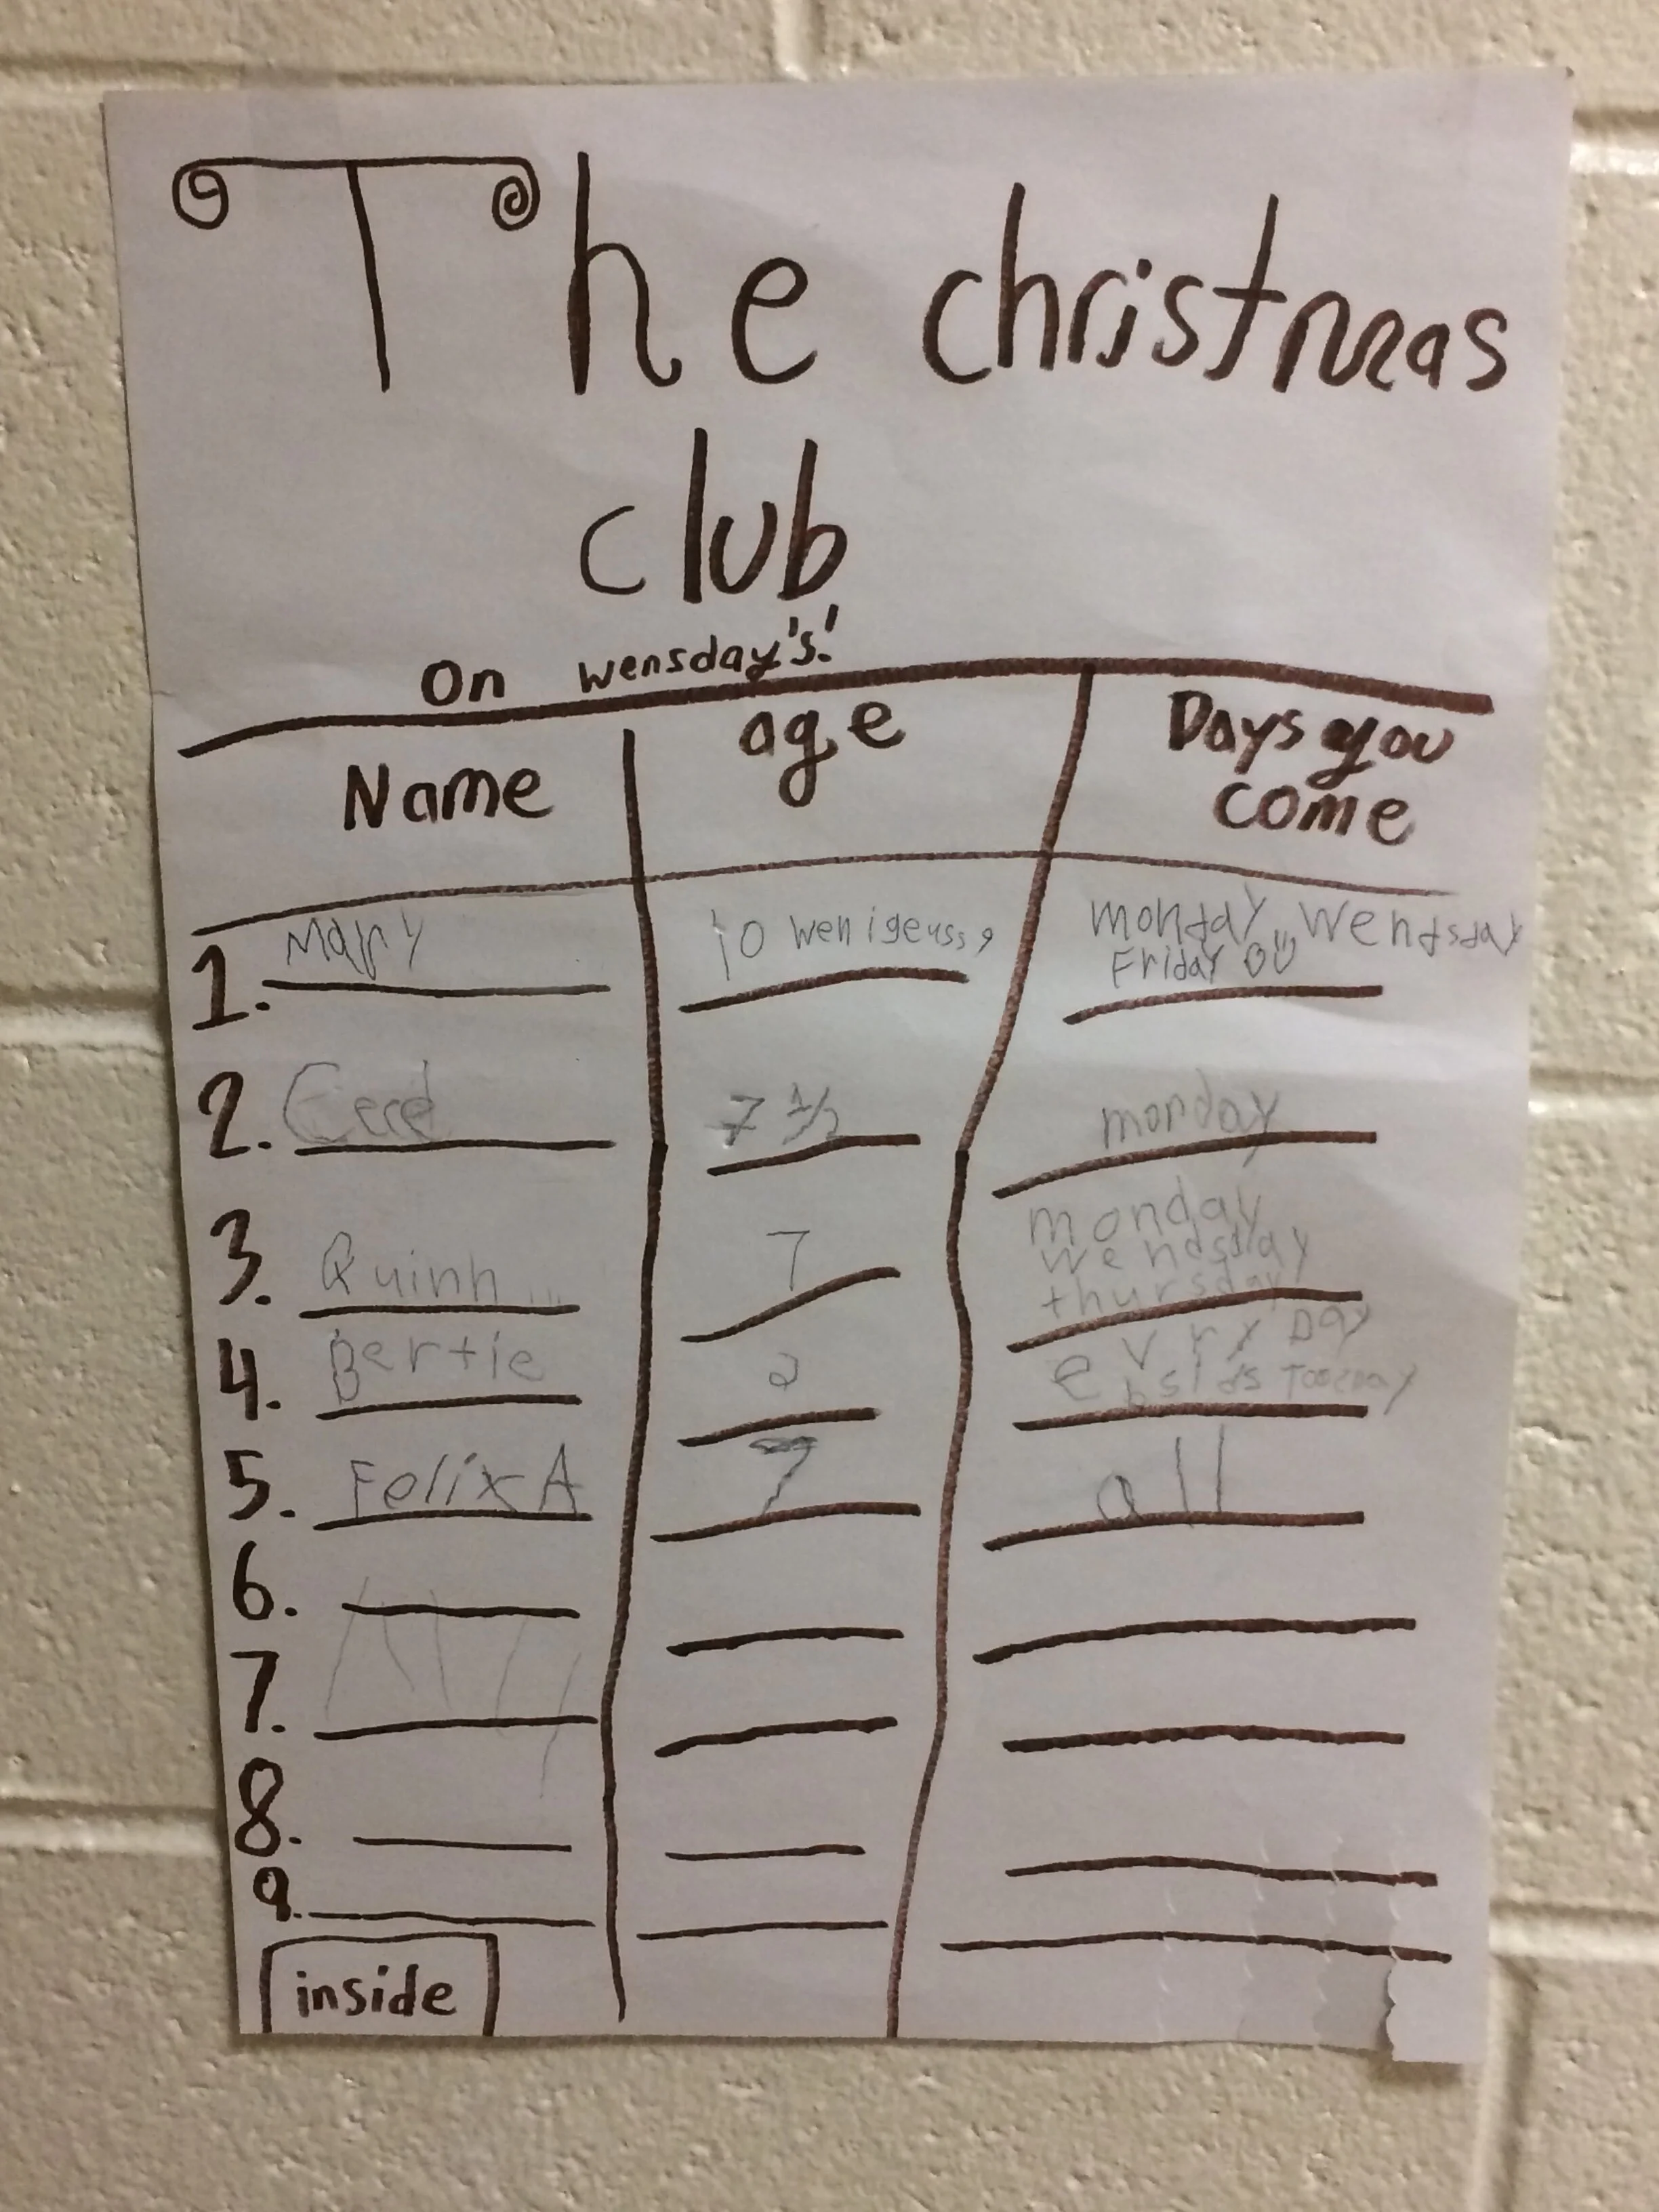 The christmas
club
On wensday's!
Name age Days you
come
1. Mary 10 monday Wendsday
Friday
2. 7 1/2 monday
3. Quinn 7 monday
wendsday
thursday
4. Bertie 2 evry Day
bsids Toosday
5. Felix A 7 all
6.
7.
8.
9.
inside